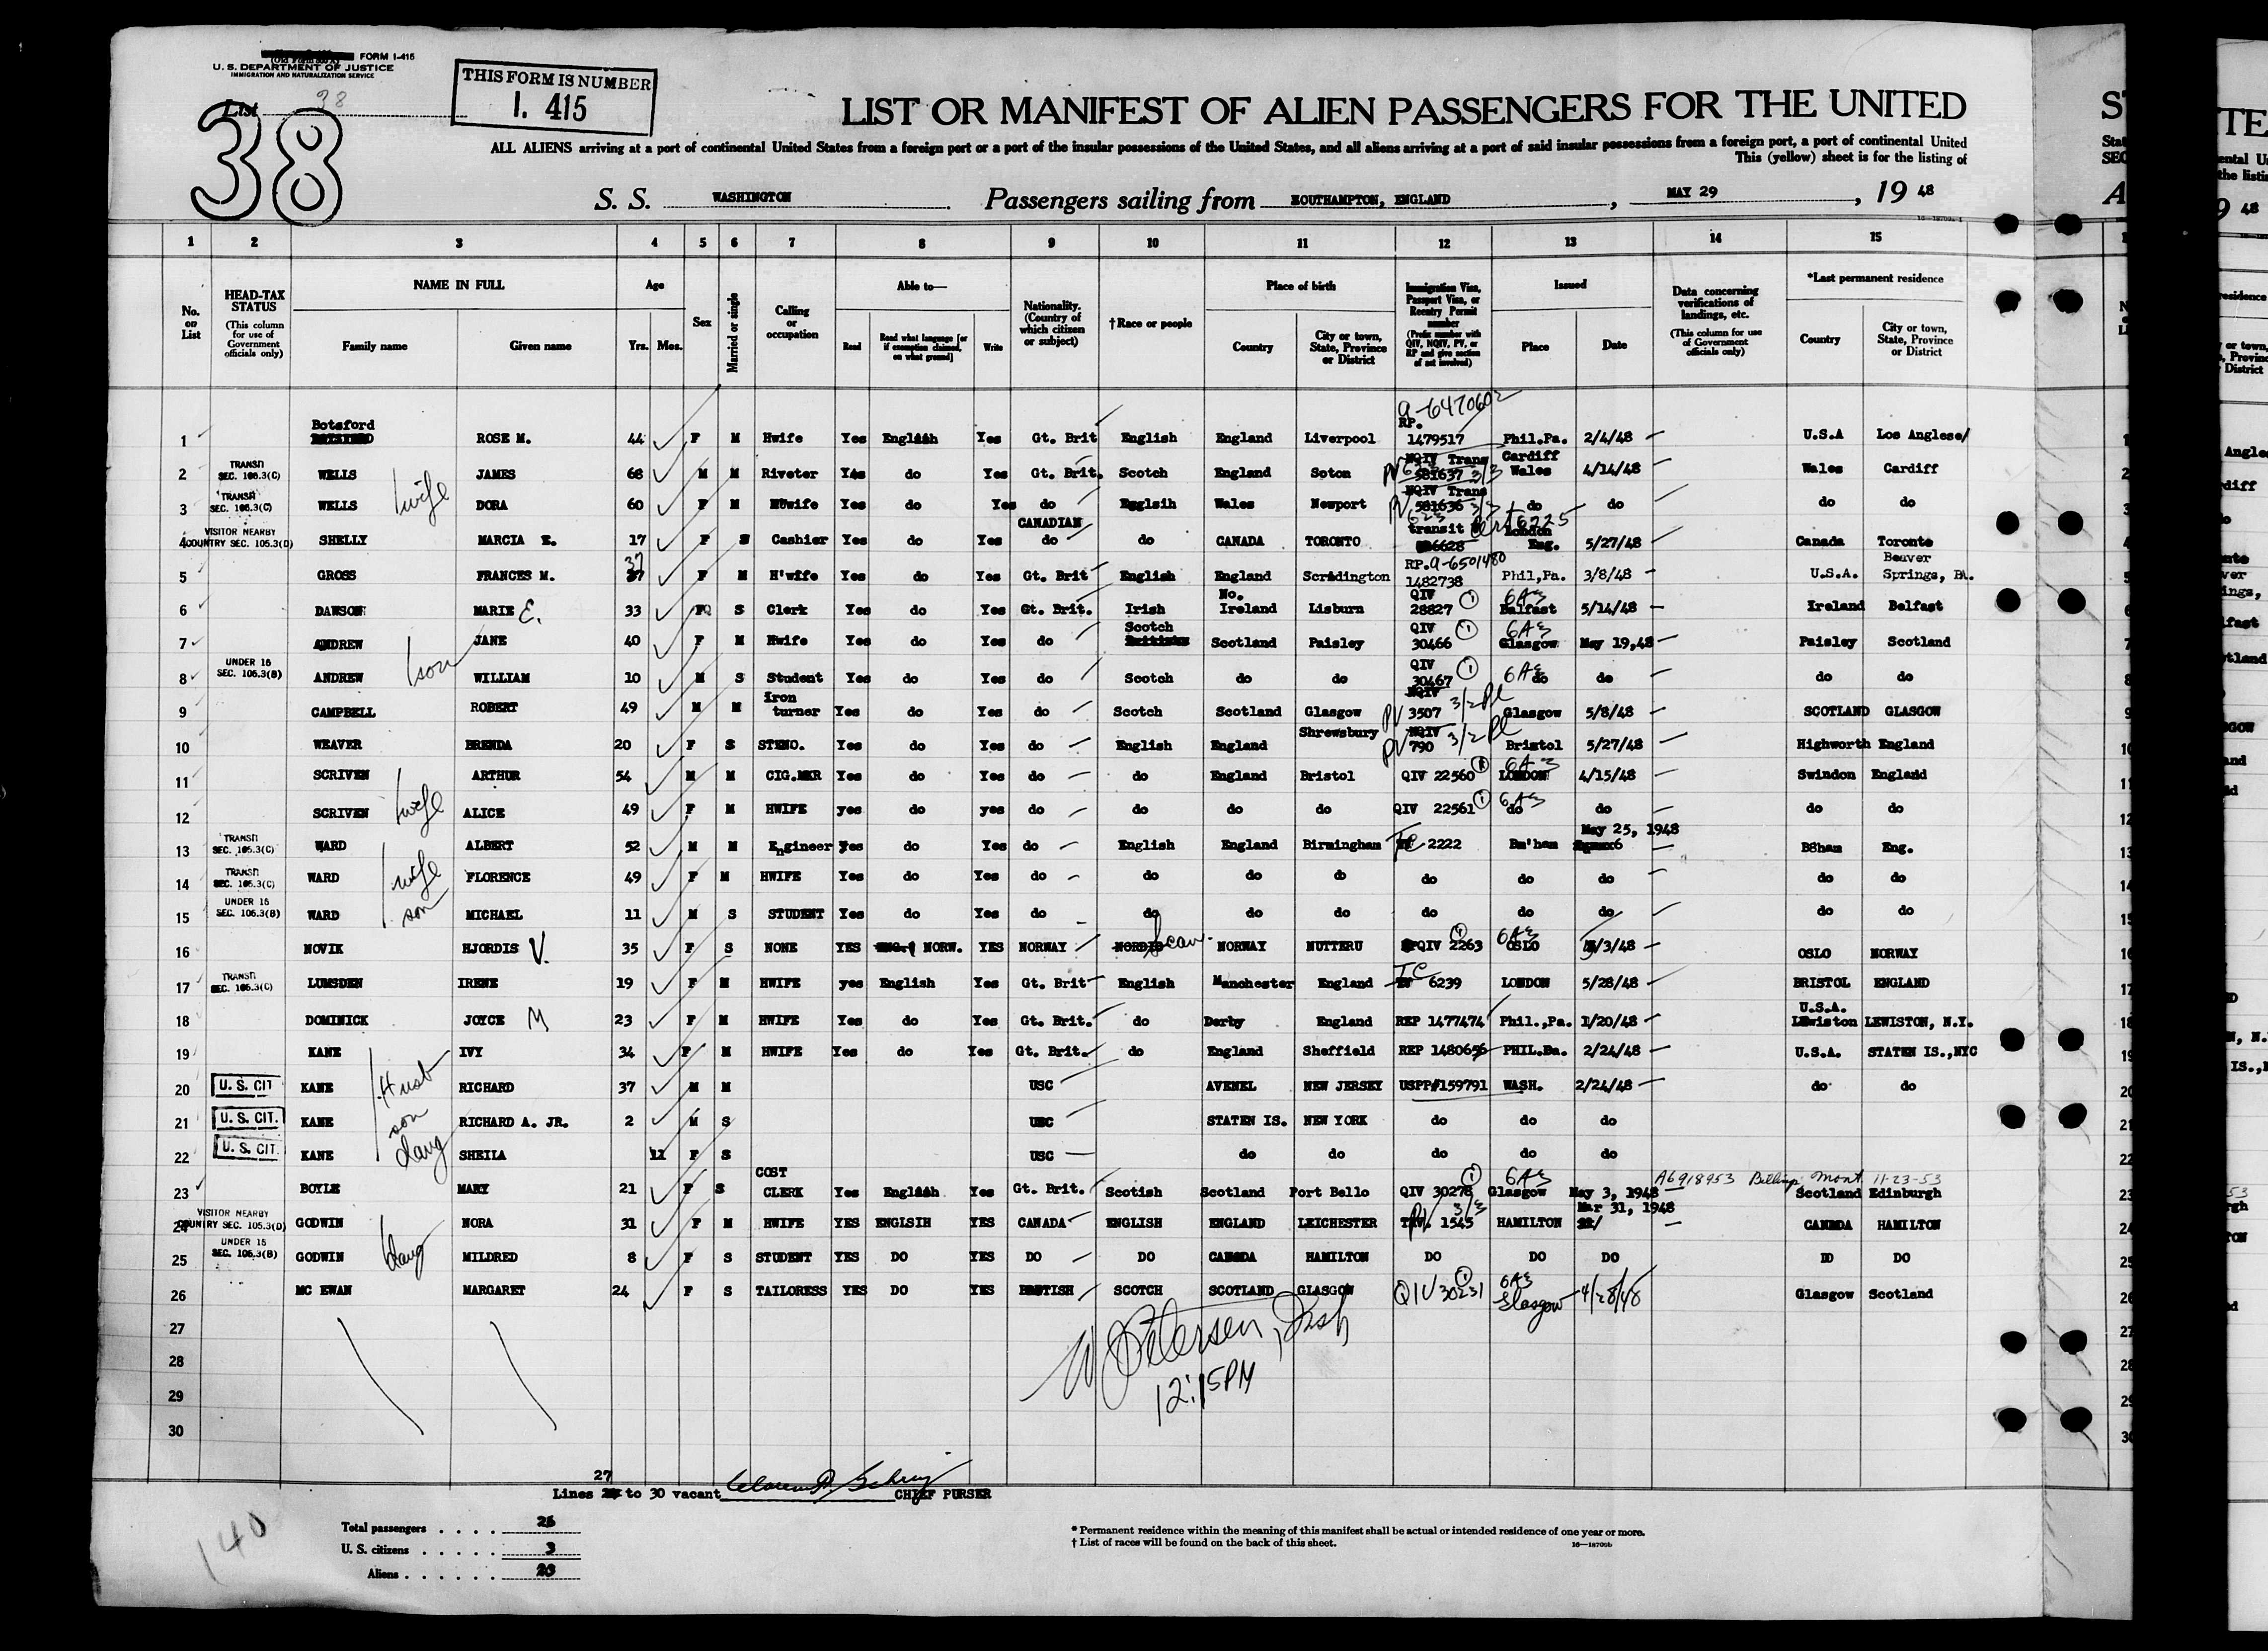 FORM I-415
U. S. DEPARTMENT OF JUSTICE
IMMIGRATION AND NATURALIZATION SERVICE
List 38
38
THIS FORM IS NUMBER
I. 415
LIST OR MANIFEST OF ALIEN PASSENGERS FOR THE UNITED
ALL ALIENS arriving at a port of continental United States from a foreign port or a port of the insular possessions of the United States, and all aliens arriving at a port of said insular possessions from a foreign port, a port of continental United
This (yellow) sheet is for the listing of
S. S. WASHINGTON Passengers sailing from SOUTHAMPTON, ENGLAND, MAY 29, 19 48
1 2 3 4 5 6 7 8 9 10 11 12 13 14 15
No. on List
HEAD-TAX STATUS (This column for use of Government officials only)
NAME IN FULL Family name Given name
Age Yrs. Mos.
Sex
Married or single
Calling or occupation
Able to— Read Read what language [or if exemption claimed, on what ground] Write
Nationality. (Country of which citizen or subject)
†Race or people
Place of birth Country City or town, State, Province or District
Immigration Visa, Passport Visa, or Reentry Permit number (Prefix number with QIV, NQIV, PV, or RP and give section of act involved)
Issued Place Date
Data concerning verifications of landings, etc. (This column for use of Government officials only)
*Last permanent residence Country City or town, State, Province or District
1 Botsford ROSE M. 44 F M Hwife Yes English Yes Gt. Brit English England Liverpool a-6470602 RP. 1479517 Phil.Pa. 2/4/48 U.S.A Los Anglese/
2 TRANSIT SEC. 105.3(C) WELLS JAMES 68 M M Riveter Yes do Yes Gt. Brit. Scotch England Soton NQIV Trans 581637 3/3 Cardiff Wales 4/14/48 Wales Cardiff
3 TRANSIT SEC. 105.3(C) WELLS wife DORA 60 F M Hwife Yes do Yes do Eglsih Wales Newport NQIV Trans 581636 3/3 do do do do
4 VISITOR NEARBY COUNTRY SEC. 105.3(D) SHELLY MARCIA E. 17 F S Cashier Yes do Yes CANADIAN do do CANADA TORONTO transit London Eng. 5/27/48 Canada Toronto
5 GROSS FRANCES M. 37 F M H'wife Yes do Yes Gt. Brit English England Scrédington RP. a-6501480 1482738 Phil,Pa. 3/8/48 U.S.A. Beaver Springs, PA.
6 DAWSON MARIE E. 33 F S Clerk Yes do Yes Gt. Brit. Irish No. Ireland Lisburn QIV 28827 6A3 Belfast 5/14/48 Ireland Belfast
7 ANDREW JANE 40 F M Hwife Yes do Yes do Scotch Scotland Paisley QIV 30466 6A3 Glasgow May 19,48 Paisley Scotland
8 UNDER 16 SEC. 105.3(B) ANDREW son WILLIAM 10 M S Student Yes do Yes do Scotch do do QIV 30467 6A3 do do do do
9 CAMPBELL ROBERT 49 M M Iron turner Yes do Yes do Scotch Scotland Glasgow NQIV PV 3507 3/2 Pl Glasgow 5/8/48 SCOTLAND GLASGOW
10 WEAVER BRENDA 20 F S STENO. Yes do Yes do English England Shrewsbury NQIV PV 790 3/2 Pl Bristol 5/27/48 Highworth England
11 SCRIVEN ARTHUR 54 M M CIG.MKR Yes do Yes do do England Bristol QIV 22560 6A3 LONDON 4/15/48 Swindon England
12 SCRIVEN wife ALICE 49 F M HWIFE yes do yes do do do do QIV 22561 6A3 do do do do
13 TRANSIT SEC. 105.3(C) WARD ALBERT 52 M M Engineer Yes do Yes do English England Birmingham TC 2222 Bm'ham May 25, 1948 Bham Eng.
14 TRANSIT SEC. 105.3(C) WARD wife FLORENCE 49 F M HWIFE Yes do Yes do do do do do do do do do
15 UNDER 16 SEC. 105.3(B) WARD son MICHAEL 11 M S STUDENT Yes do Yes do do do do do do do do do
16 NOVIK HJORDIS V. 35 F S NONE YES NORW. YES NORWAY NORDIC Scan. NORWAY NUTTERU QIV 2263 6A3 OSLO 5/3/48 OSLO NORWAY
17 TRANSIT SEC. 105.3(C) LUMSDEN IRENE 19 F M HWIFE yes English Yes Gt. Brit English Manchester England TC 6239 LONDON 5/28/48 BRISTOL ENGLAND
18 DOMINICK JOYCE M 23 F M HWIFE Yes do Yes Gt. Brit. do Derby England REP 1477474 Phil.,Pa. 1/20/48 U.S.A. Lewiston LEWISTON, N.Y.
19 KANE IVY 34 F M HWIFE Yes do Yes Gt. Brit. do England Sheffield REP 1480656 PHIL.Pa. 2/24/48 U.S.A. STATEN IS.,NYC
20 U. S. CIT KANE Husb RICHARD 37 M M USC AVENEL NEW JERSEY USPP#159791 WASH. 2/24/48 do do
21 U. S. CIT. KANE son RICHARD A. JR. 2 M S USC STATEN IS. NEW YORK do do do
22 U. S. CIT. KANE daug SHEILA 11 F S USC do do do do do
23 BOYLE MARY 21 F S COST CLERK Yes English Yes Gt. Brit. Scotish Scotland Port Bello QIV 30278 6A3 Glasgow May 3, 1948 A6918953 Billings Mont. 11-23-53 Scotland Edinburgh
24 VISITOR NEARBY COUNTRY SEC. 105.3(D) GODWIN NORA 31 F M HWIFE YES ENGLSIH YES CANADA ENGLISH ENGLAND LEICHESTER PV 1545 3/3 HAMILTON Mar 31, 1948 CANADA HAMILTON
25 UNDER 16 SEC. 105.3(B) GODWIN daug MILDRED 8 F S STUDENT YES DO YES DO DO CANADA HAMILTON DO DO DO DO DO
26 MC EWAN MARGARET 24 F S TAILORESS YES DO YES BRITISH SCOTCH SCOTLAND GLASGOW QIV 30231 6A3 Glasgow 4/28/48 Glasgow Scotland
27
28
29
30
W Petersen, Insp
12:15PM
Lines 27 to 30 vacant CHIEF PURSER
Total passengers . . . . 26
U. S. citizens . . . . . 3
Aliens . . . . . . 23
140
* Permanent residence within the meaning of this manifest shall be actual or intended residence of one year or more.
† List of races will be found on the back of this sheet.